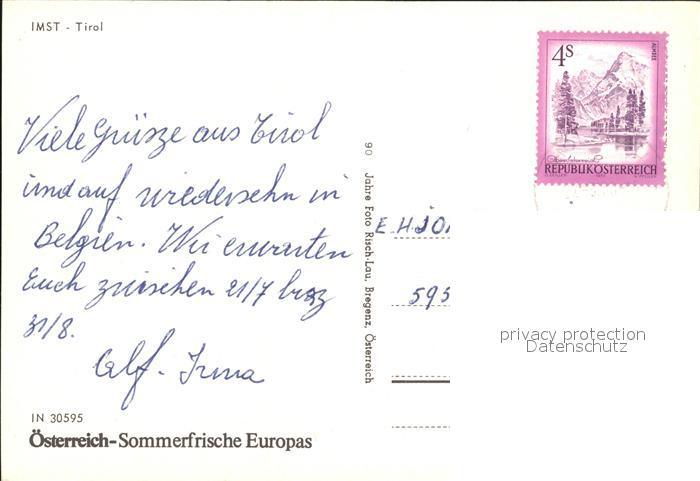 IMST - Tirol
4 S
ALMSEE
Oberösterreich
REPUBLIK ÖSTERREICH
Viele Grüsze aus Tirol
und auf wiedersehn in
Belgien. Wir erwarten
Euch zwischen 21/7
31/8.
Alf. Irma
90 Jahre Foto Risch-Lau, Bregenz, Österreich
E. H. JO
595
privacy protection
Datenschutz
IN 30595
Österreich-Sommerfrische Europas